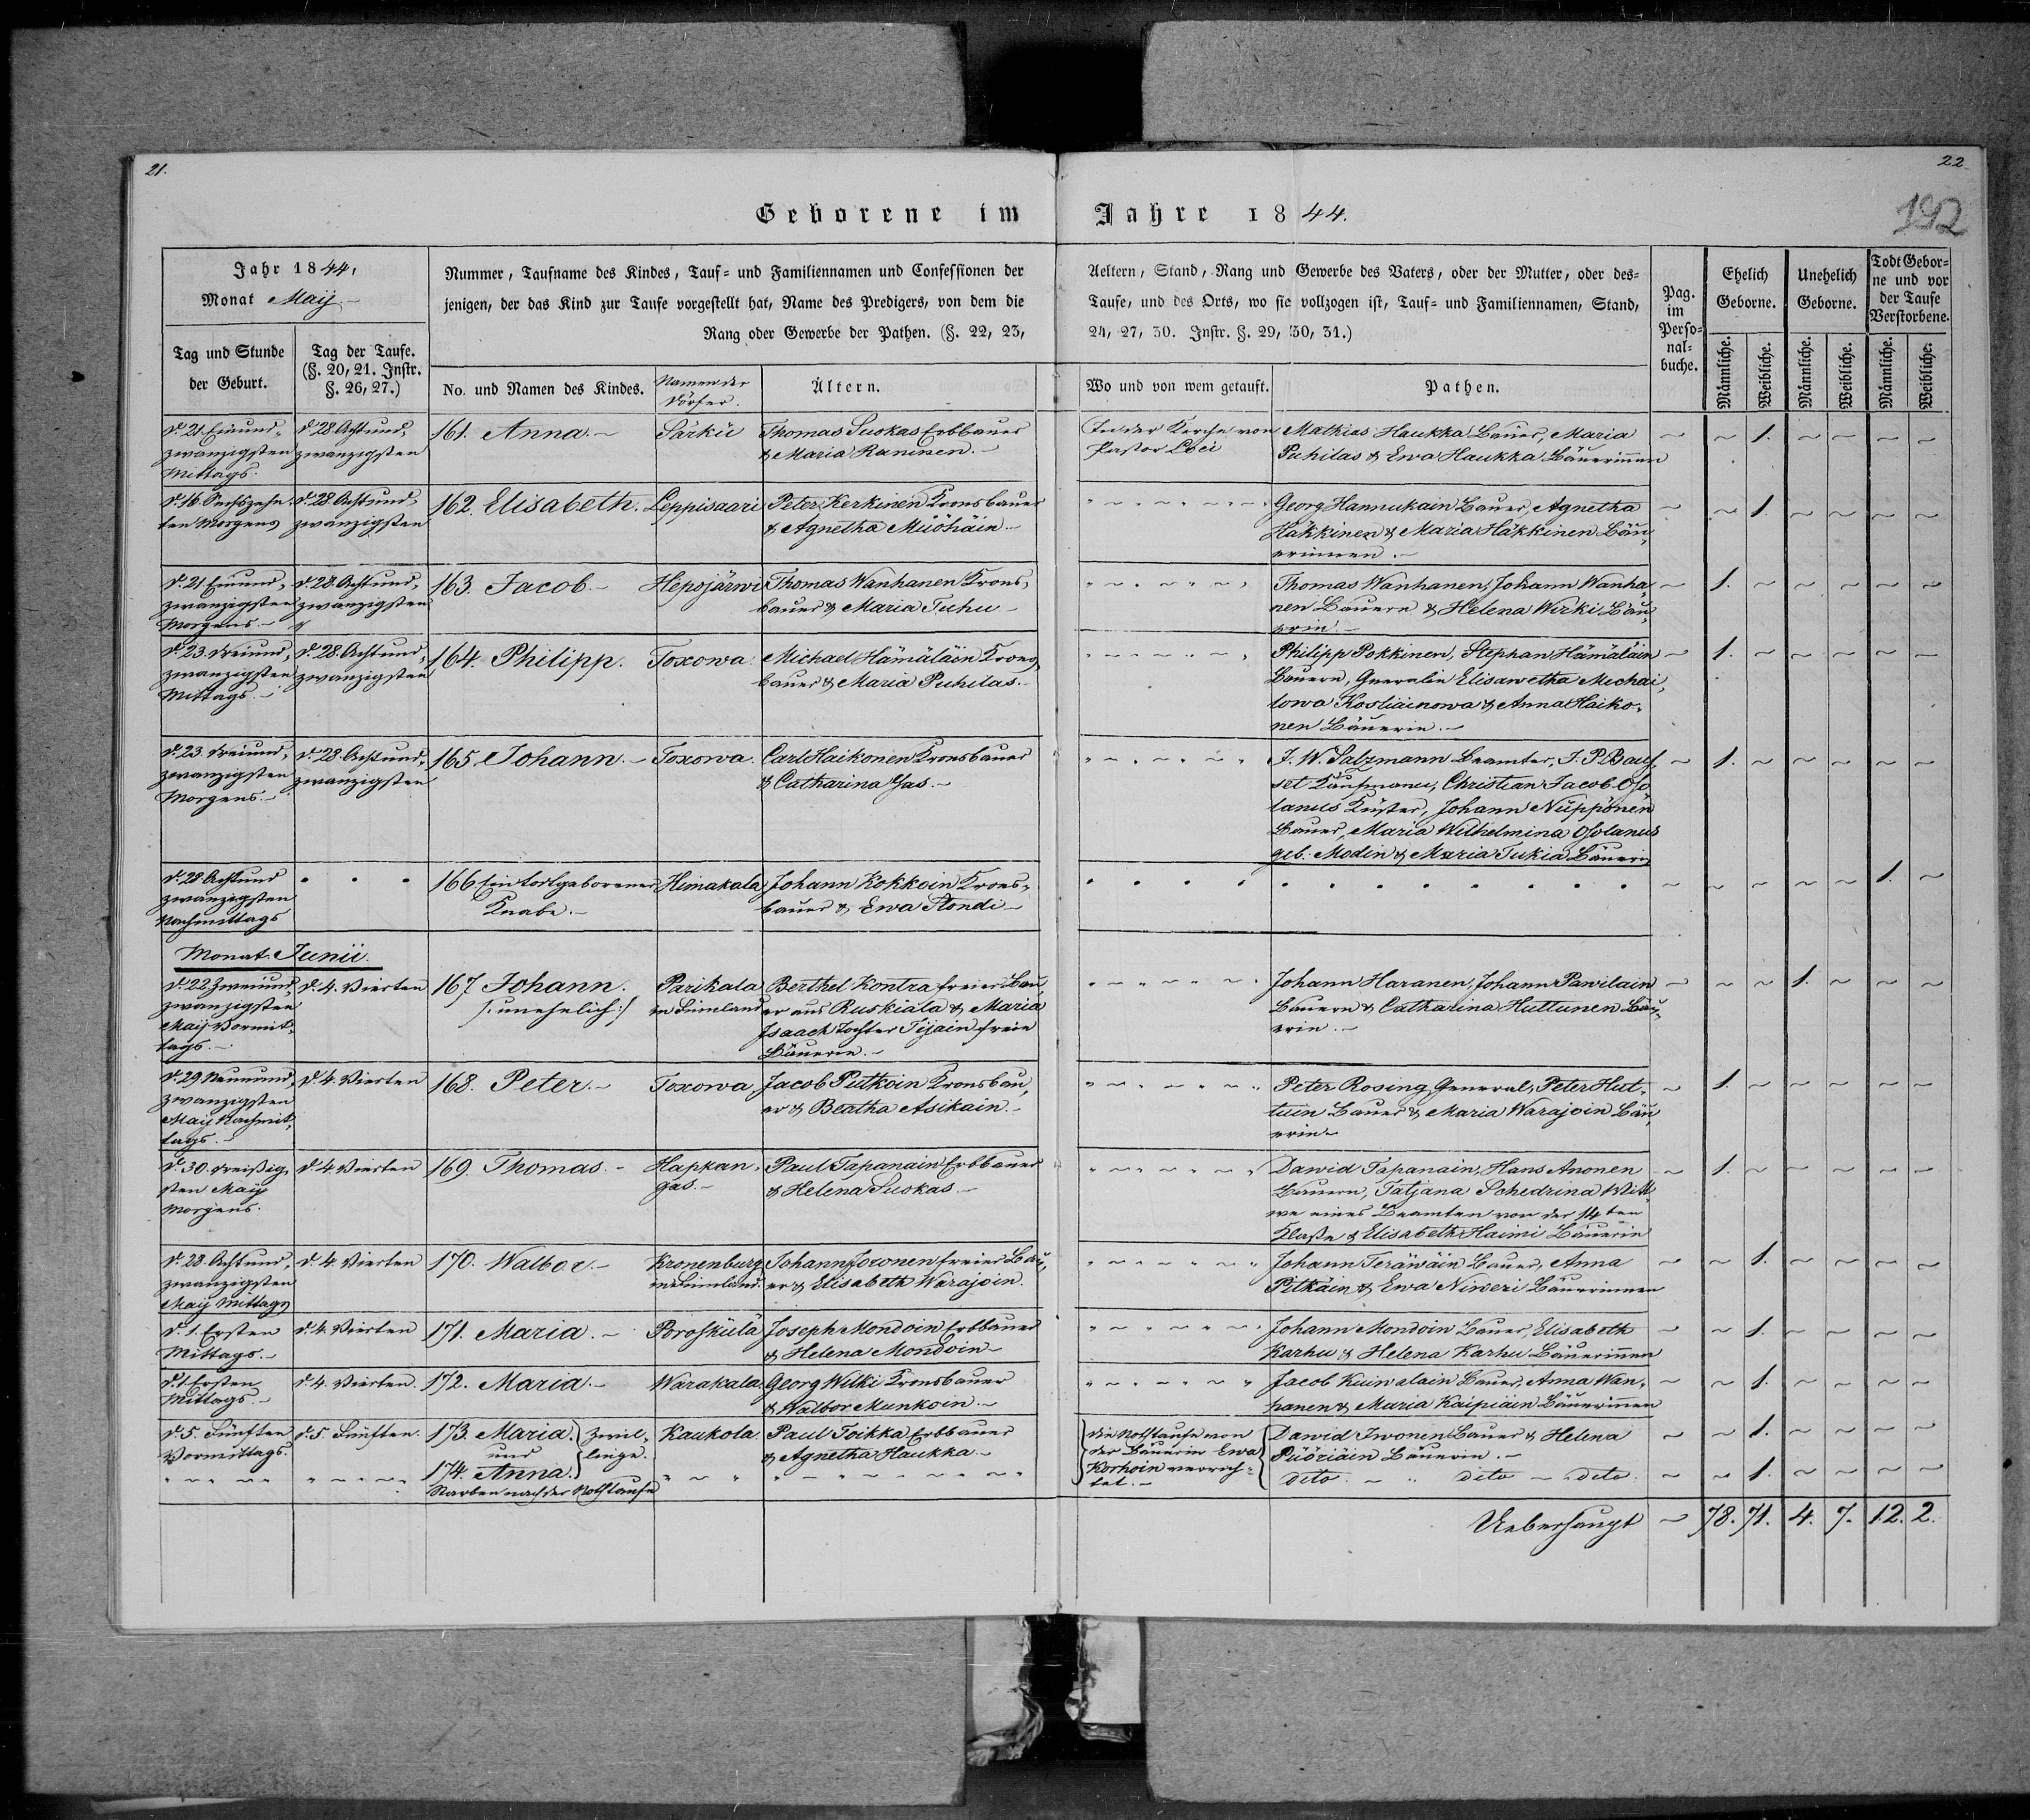 21.
22.
192
Geborene im Jahre 1844.
Jahr 1844,
Monat Maij.
Tag und Stunde
der Geburt.
Tag der Taufe.
(§. 20, 21. Instr.
§. 26, 27.)
Nummer, Taufname des Kindes, Tauf- und Familiennamen und Confessionen der
jenigen, der das Kind zur Taufe vorgestellt hat, Name des Predigers, von dem die
Rang oder Gewerbe der Pathen. (§. 22, 23,
No. und Namen des Kindes.
Namen der
Dörfer.
Ältern.
Aeltern, Stand, Rang und Gewerbe des Vaters, oder der Mutter, oder des-
Taufe, und des Orts, wo sie vollzogen ist, Tauf- und Familiennamen, Stand,
24, 27, 30. Instr. §. 29, 30, 31.)
Wo und von wem getauft.
Pathen.
Pag.
im
Perso-
nal-
buche.
Ehelich
Geborne.
Unehelich
Geborne.
Todt Gebor-
ne und vor
der Taufe
Verstorbene.
Männliche.
Weibliche.
Männliche.
Weibliche.
Männliche.
Weibliche.
d. 21. Einund-
zwanzigsten
Mittags.
d. 28. Achtund-
zwanzigsten
161. Anna.
Särkii
Thomas Suokas Erbbauer
& Maria Kaninen.
In der Kirche von
Pastor Loci
Mathias Haukka Bauer, Maria
Puhilas & Ewa Haukka Bäuerinnen
1.
d. 16. Sechszehn-
ten Morgens
d. 28. Achtund-
zwanzigsten
162. Elisabeth.
Leppisaari
Peter Kerkinen Kronsbauer
& Agnetha Müöhäin.
Georg Hannukain Bauer, Agnetha
Häkkinen & Maria Häkkinen Bäu-
erinnen.
1.
d. 21. Einund-
zwanzigsten
Morgens.
d. 28. Achtund-
zwanzigsten
163. Jacob.
Hepojärwi
Thomas Wanhanen Krons-
bauer & Maria Tuhu
Thomas Wanhanen, Johann Wanha-
nen Bauern & Helena Wirki Bäu-
erin.
1.
d. 23. Dreiund-
zwanzigsten
Mittags.
d. 28. Achtund-
zwanzigsten
164. Philipp.
Toxowa.
Michael Hämäläin Krons-
bauer & Maria Puhilas.
Philipp Pokkinen, Stephan Hämäläin
Bauern, Generalin Elisawetha Michai-
lowa Kostiainowa & Anna Haiko-
nen Bäuerin.
1.
d. 23. Dreiund-
zwanzigsten
Morgens.
d. 28. Achtund-
zwanzigsten
165. Johann.
Toxowa.
Carl Haikonen Kronsbauer
& Catharina Yas.
J. W. Salzmann Beamter, J. P. Bauf-
set Kaufmann, Christian Jacob Oso
lanus Küster, Johann Nüppönen
Bauer, Maria Wilhelmina Osolanus
geb. Modin & Maria Tukia Bäuerin
1.
d. 28 Achtund
zwanzigsten
Nachmittags
166 Ein todtgeborener
Knabe.
Himakala
Johann Kokkoin Krons-
bauer & Ewa Pondi
1.
Monat Junii.
d. 22 Zweiund-
zwanzigsten
Maij Vormit-
tags.
d. 4. Vierten
167. Johann.
/: unehelich :/
Parikala
in Finnland
Berthel Kontra freier Bau-
er aus Ruskiala & Maria
Isaack Tochter Tijain freie
Bäuerin.
Johann Haranen, Johann Pawilain
Bauern & Catharina Huttunen Bäu-
erin.
1.
d. 29 Neunund-
zwanzigsten
Maij Nachmit-
tags.
d. 4. Vierten
168. Peter.
Toxowa
Jacob Putkoin Kronsbau-
er & Beatha Asikain.
Peter Rosing General, Peter Hut-
tuin Bauer & Maria Warajoin Bäu-
erin
1.
d. 30. Dreißig-
sten Maij
Morgens.
d. 4. Vierten
169. Thomas.
Hapkan-
gas.
Paul Tapanain Erbbauer
& Helena Suokas.
Dawid Tapanain, Hans Anonen
Bauern, Tatjana Schedrina Witt-
we eines Beamten von der 14ten
Klaße & Elisabeth Haimi Bäuerin
1.
d. 28. Achtund-
zwanzigsten
Maij Mittags
d. 4. Vierten
170. Walbor.
Kronenburg
in Finnland.
Johann Joronen freier Bau-
er & Elisabeth Warajoin.
Johann Teräwäin Bauer, Anna
Pitkäin & Ewa Niweri Bäuerinnen
1.
d. 1. Ersten
Mittags.
d. 4. Vierten
171. Maria.
Poroskülä
Joseph Mondoin Erbbauer
& Helena Mondoin
Johann Mondoin Bauer, Elisabeth
Karhu & Helena Karhu Bäuerinnen
1.
d. 1. Ersten
Mittags.
d. 4. Vierten.
172. Maria.
Warakala.
Georg Wilki Kronsbauer
& Walbor Munkoin.
Jacob Kuiwalain Bauer, Anna Wan-
hanen & Maria Kaipiain Bäuerinnen
1.
d. 5. Fünften
Vormittags.
d. 5. Fünften.
173. Maria.
und
174. Anna.
Zwil-
linge.
Starben nach der Nothtaufe
Kaukola.
Paul Toikka Erbbauer
& Agnetha Haukka.
Die Nothtaufe von
der Bäuerin Ewa
Korhoin verrich-
tet.
Dawid Iwonen Bauer & Helena
Püöriäin Bäuerin.
dito. dito dito
1.
1.
Ueberhaupt 78. 71. 4. 7. 12. 2.